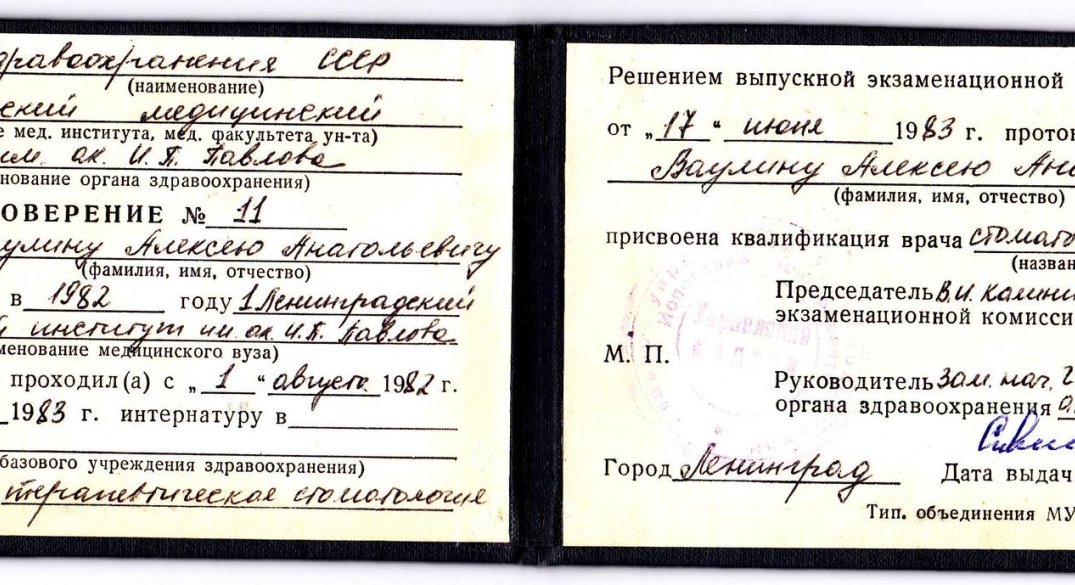 дравоохранения СССР
(наименование)
ский медицинский
е мед. института, мед. факультета ун-та)
им. ак. И.П. Павлова
нование органа здравоохранения)
ОВЕРЕНИЕ № 11
улину Алексею Анатольевичу
(фамилия, имя, отчество)
в 1982 году 1 Ленинградский
й институт им. ак. И.П. Павлова
менование медицинского вуза)
проходил(а) с „1“ августа 1982 г.
1983 г. интернатуру в
базового учреждения здравоохранения)
терапевтическая стоматология
Решением выпускной экзаменационной
от „17“ июня 1983 г. проток
Ваулину Алексею Ана
(фамилия, имя, отчество)
присвоена квалификация врача стомато
(назван
Председатель В.И. Калини
экзаменационной комисси
М. П.
Руководитель Зам. нач. Г
органа здравоохранения
Город Ленинград Дата выдач
Тип. объединения МУ